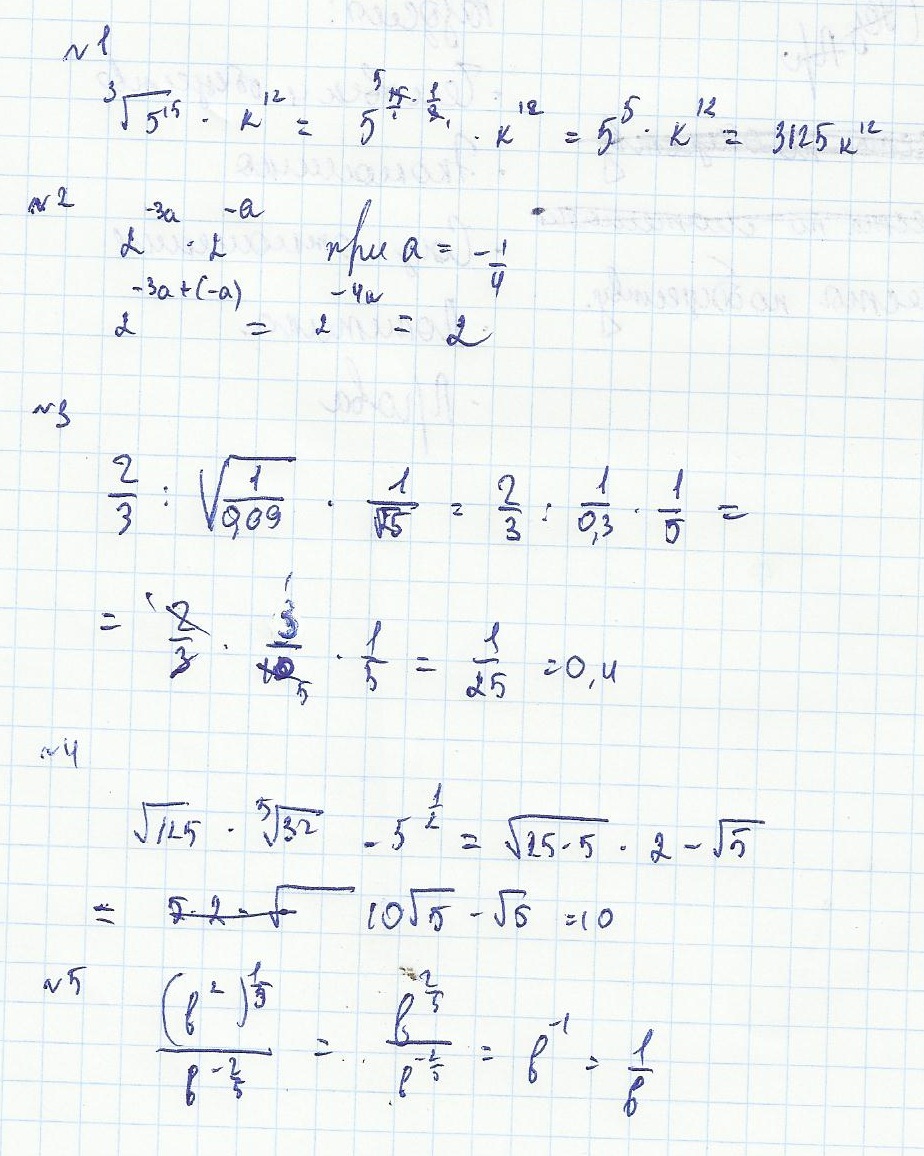 №1
∛5¹⁵ · к¹² = 5^(15/1 · 1/3) · к¹² = 5⁵ · к¹² = 3125к¹²
№2
2^(-3a) · 2^(-a) при a = -1/4
2^(-3a+(-a)) = 2^(-4a) = 2
№3
2/3 : √(1/0,09) · 1/√25 = 2/3 : 1/0,3 · 1/5 =
= 2/3 · 3/10 · 1/5 = 1/25 = 0,4
№4
√125 · ⁵√32 - 5^(1/2) = √(25·5) · 2 - √5
= 5·2·√ 10√5 - √5 = 10
№5
(b²)^(1/5) / b^(-2/5) = b^(2/5) / b^(-2/5) = b⁻¹ = 1/b